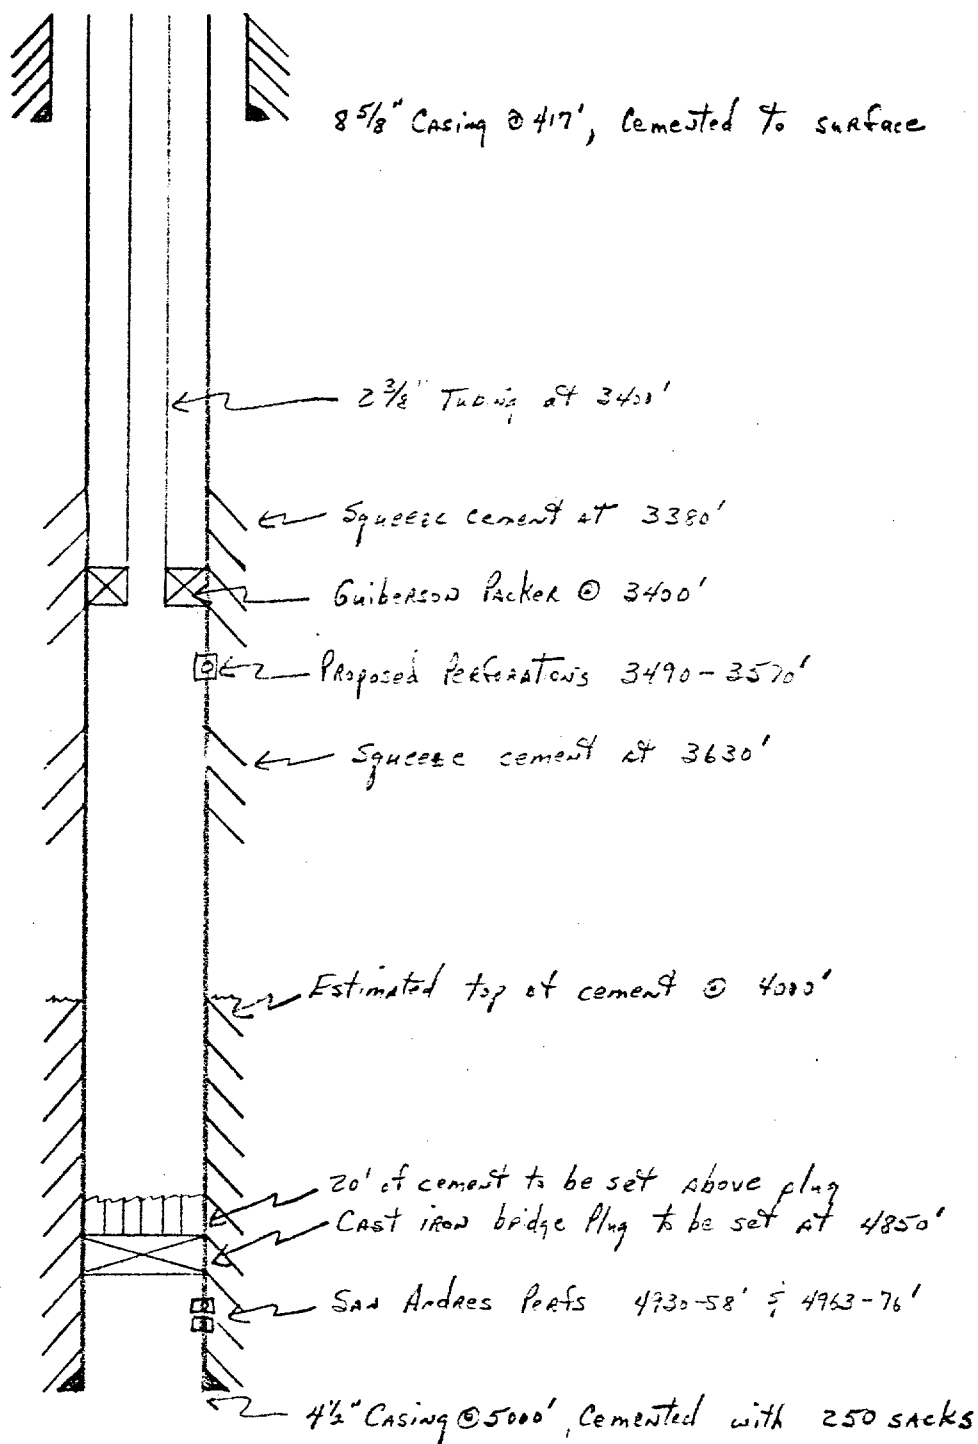 8 5/8" Casing @ 417', Cemented to surface
2 3/8" Tubing at 3400'
Squeeze cement at 3380'
Guiberson Packer @ 3400'
Proposed Perforations 3490-3570'
Squeeze cement at 3630'
Estimated top of cement @ 4000'
20' of cement to be set above plug
Cast iron bridge Plug to be set at 4850'
San Andres Perfs 4930-58' & 4963-76'
4½" Casing @ 5000', Cemented with 250 sacks